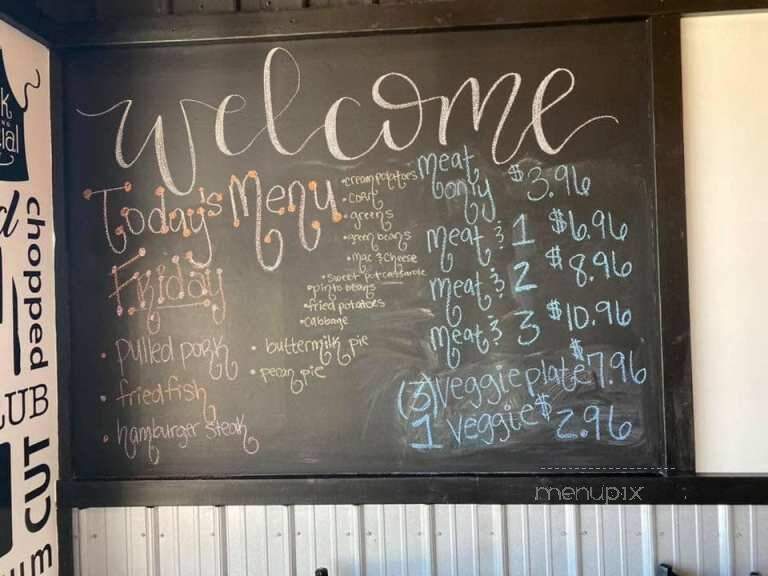 welcome
Today's Menu
Friday
• pulled pork
• fried fish
• hamburger steak
• buttermilk pie
• pecan pie
• cream potatoes
• corn
• greens
• green beans
• mac & cheese
• sweet pot casserole
• pinto beans
• fried potatoes
• cabbage
meat only $3.96
meat & 1 $6.96
meat & 2 $8.96
meat & 3 $10.96
(3) veggie plate $7.96
1 veggie $2.96
chopped
CUT
LUB
menupix